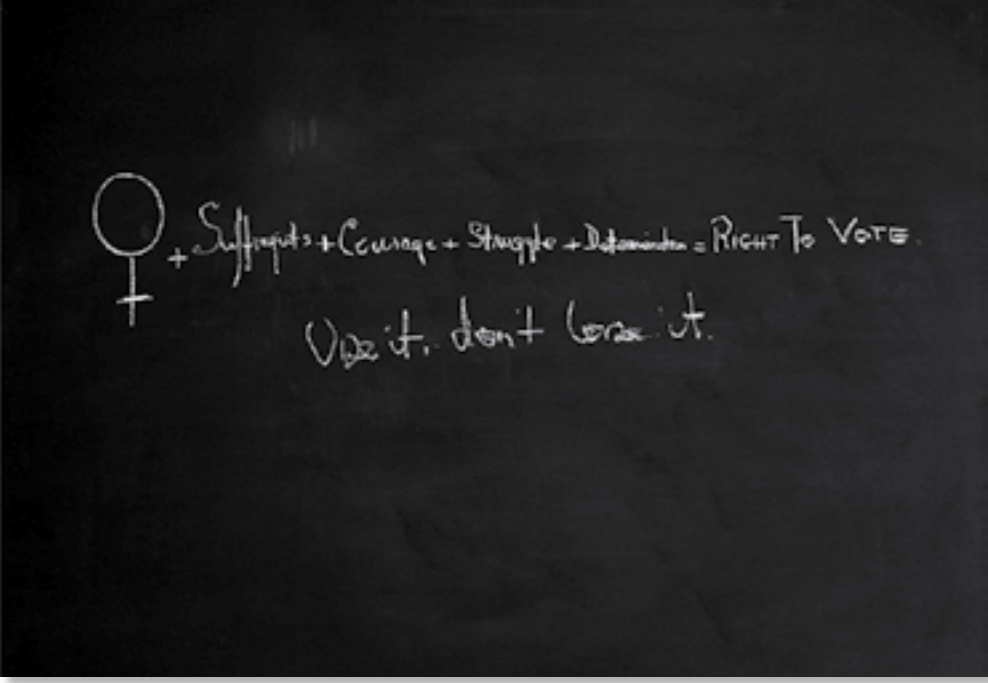 ♀ + Suffragets + Courage + Struggle + Determination = RIGHT TO VOTE.
Use it, don't lose it.